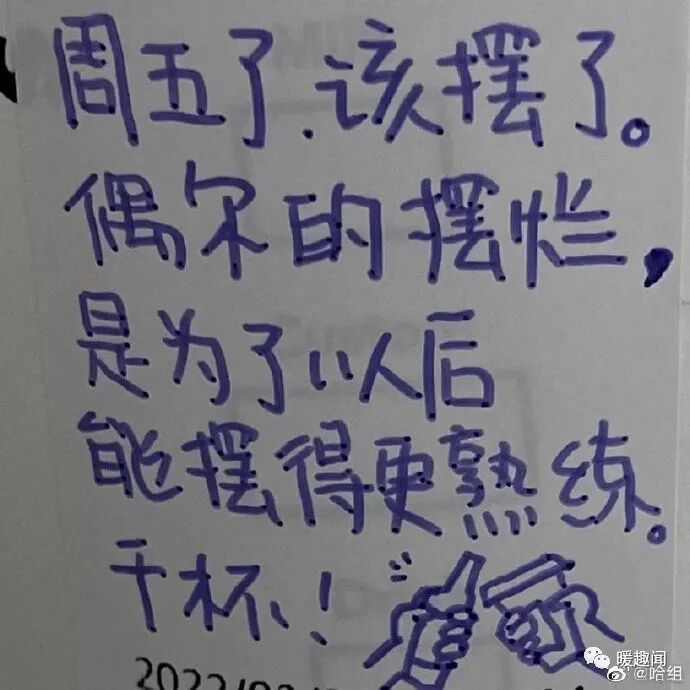 周五了、该摆了。
偶尔的摆烂，
是为了以后
能摆得更熟练。
干杯！
暖趣闻
@哈组